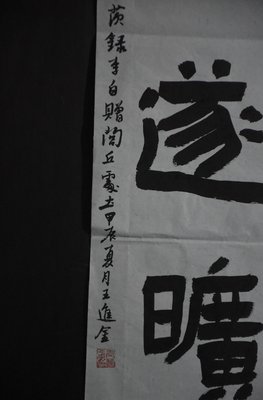 遂曠
茨錄李白贈閭丘處士甲辰夏月王進金